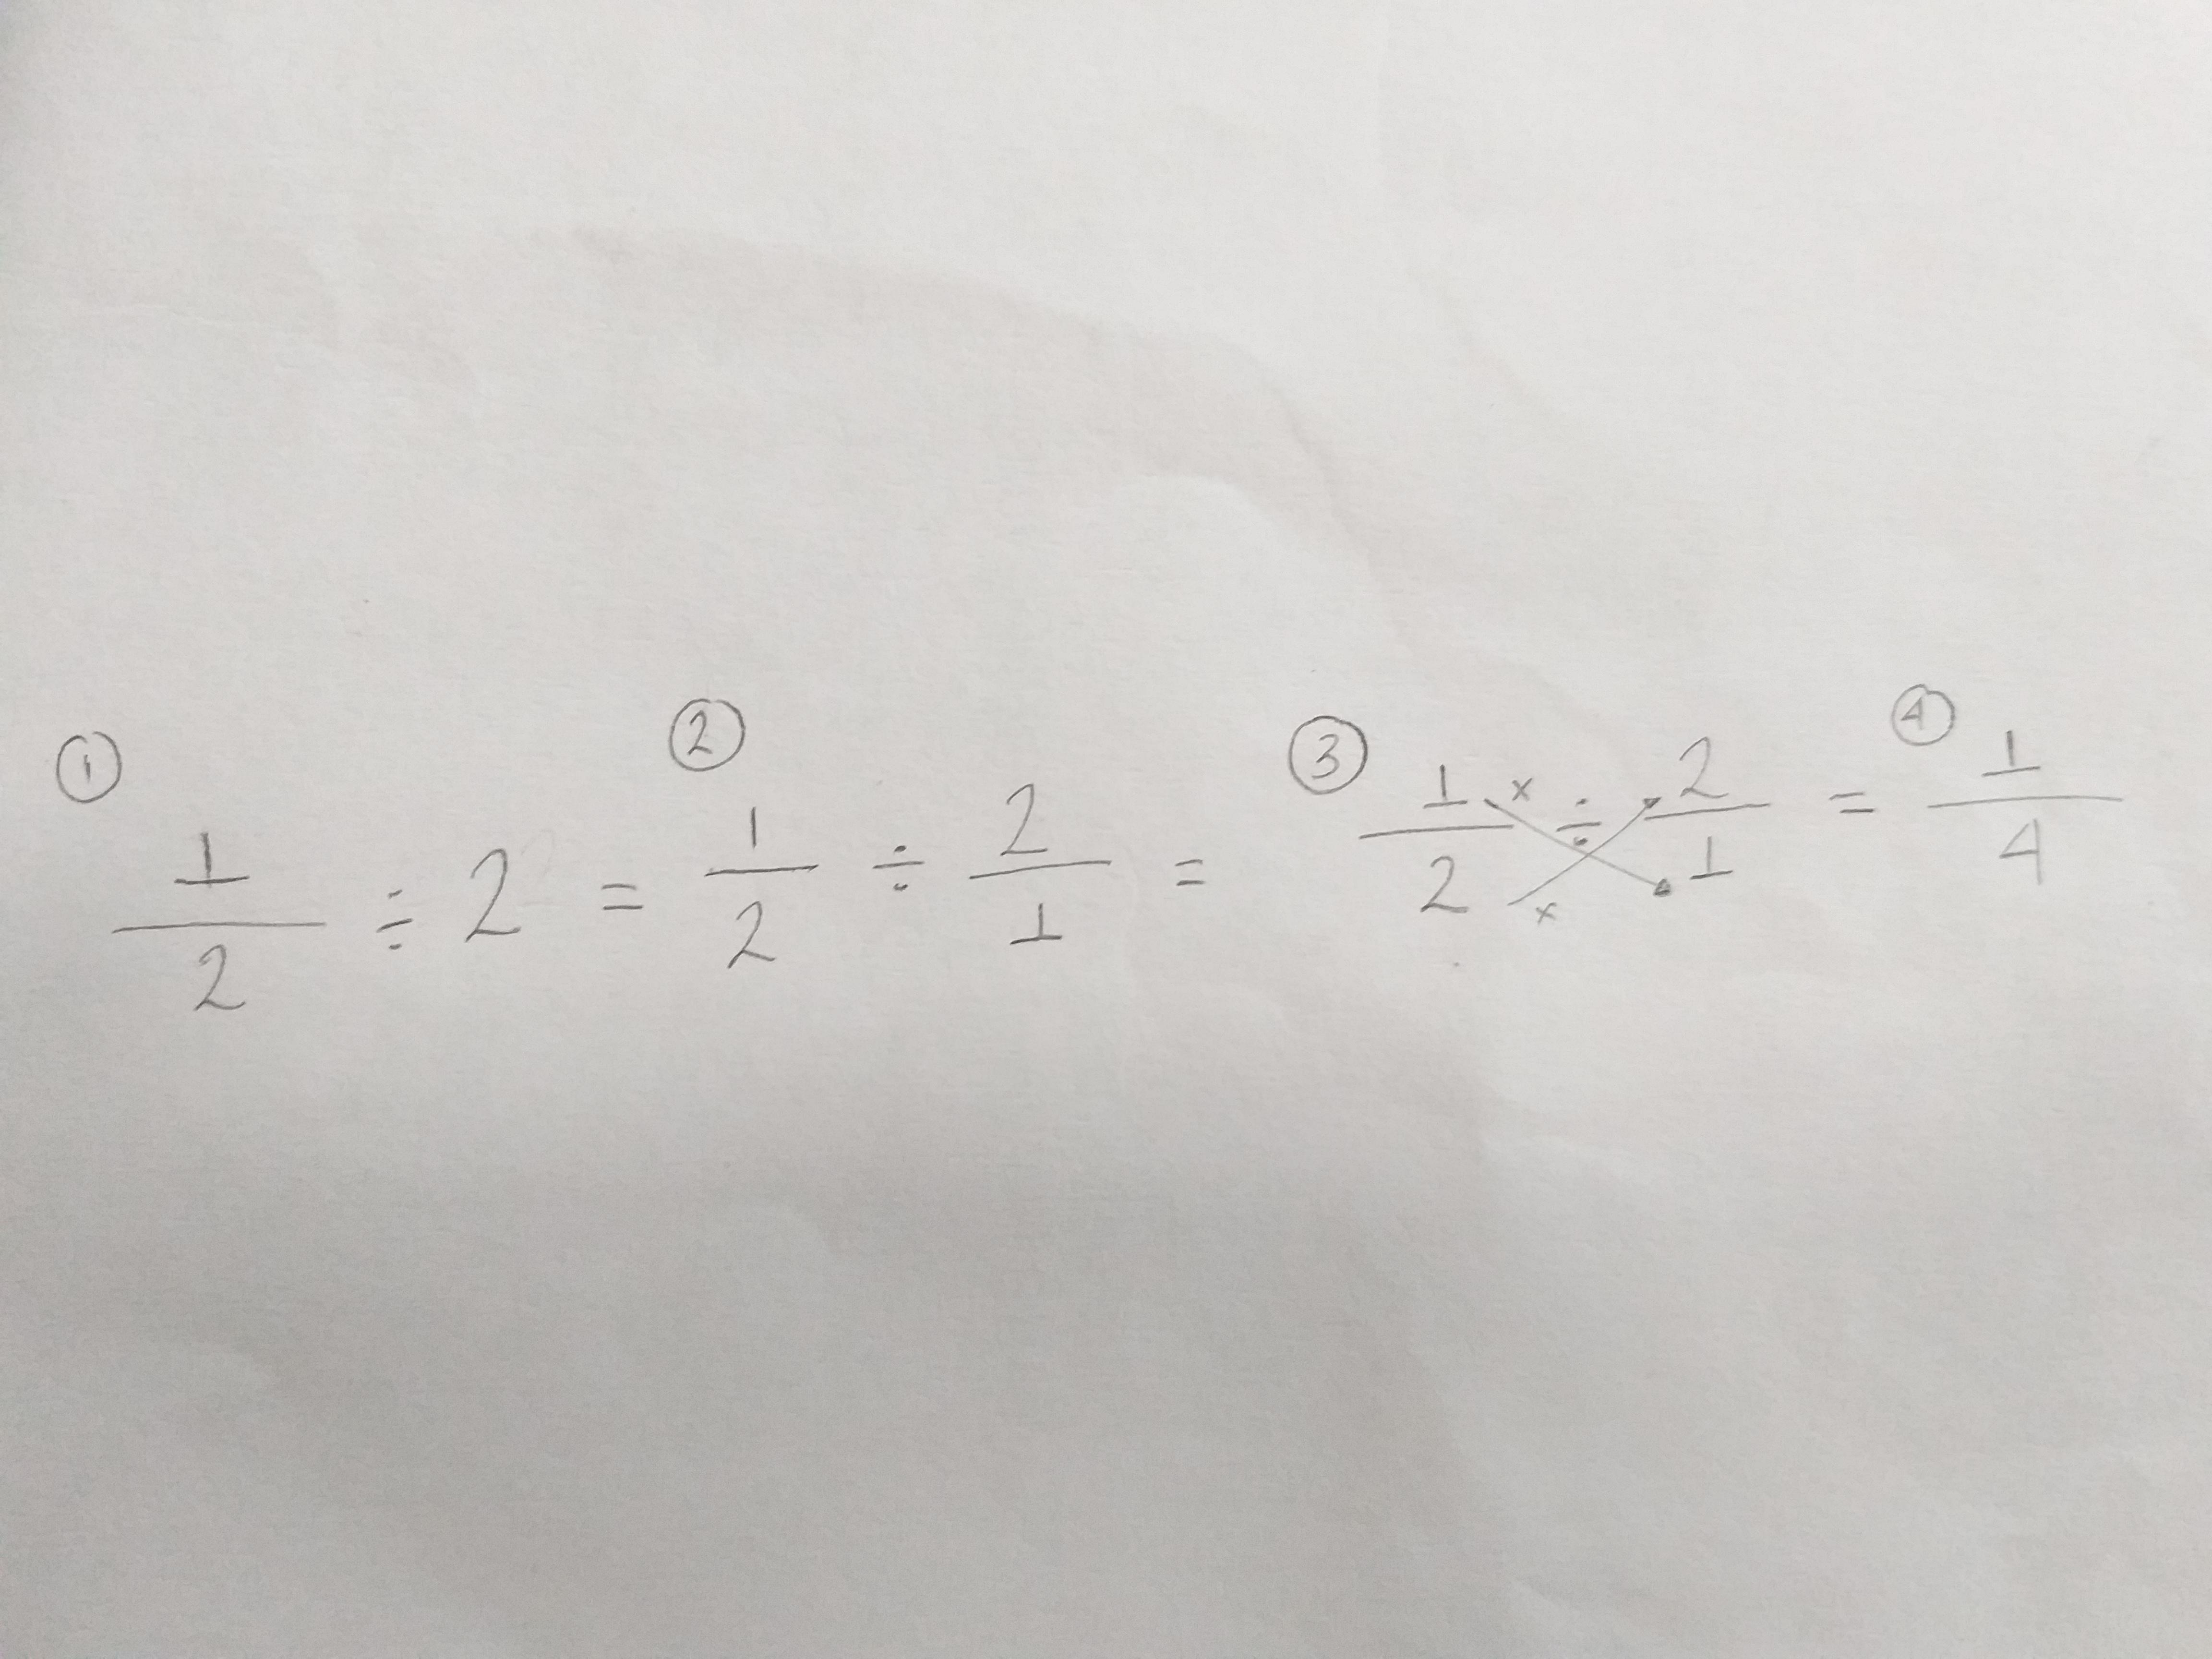 ① 1/2 ÷ 2 = ② 1/2 ÷ 2/1 = ③ 1/2 × ÷ × 2/1 = ④ 1/4